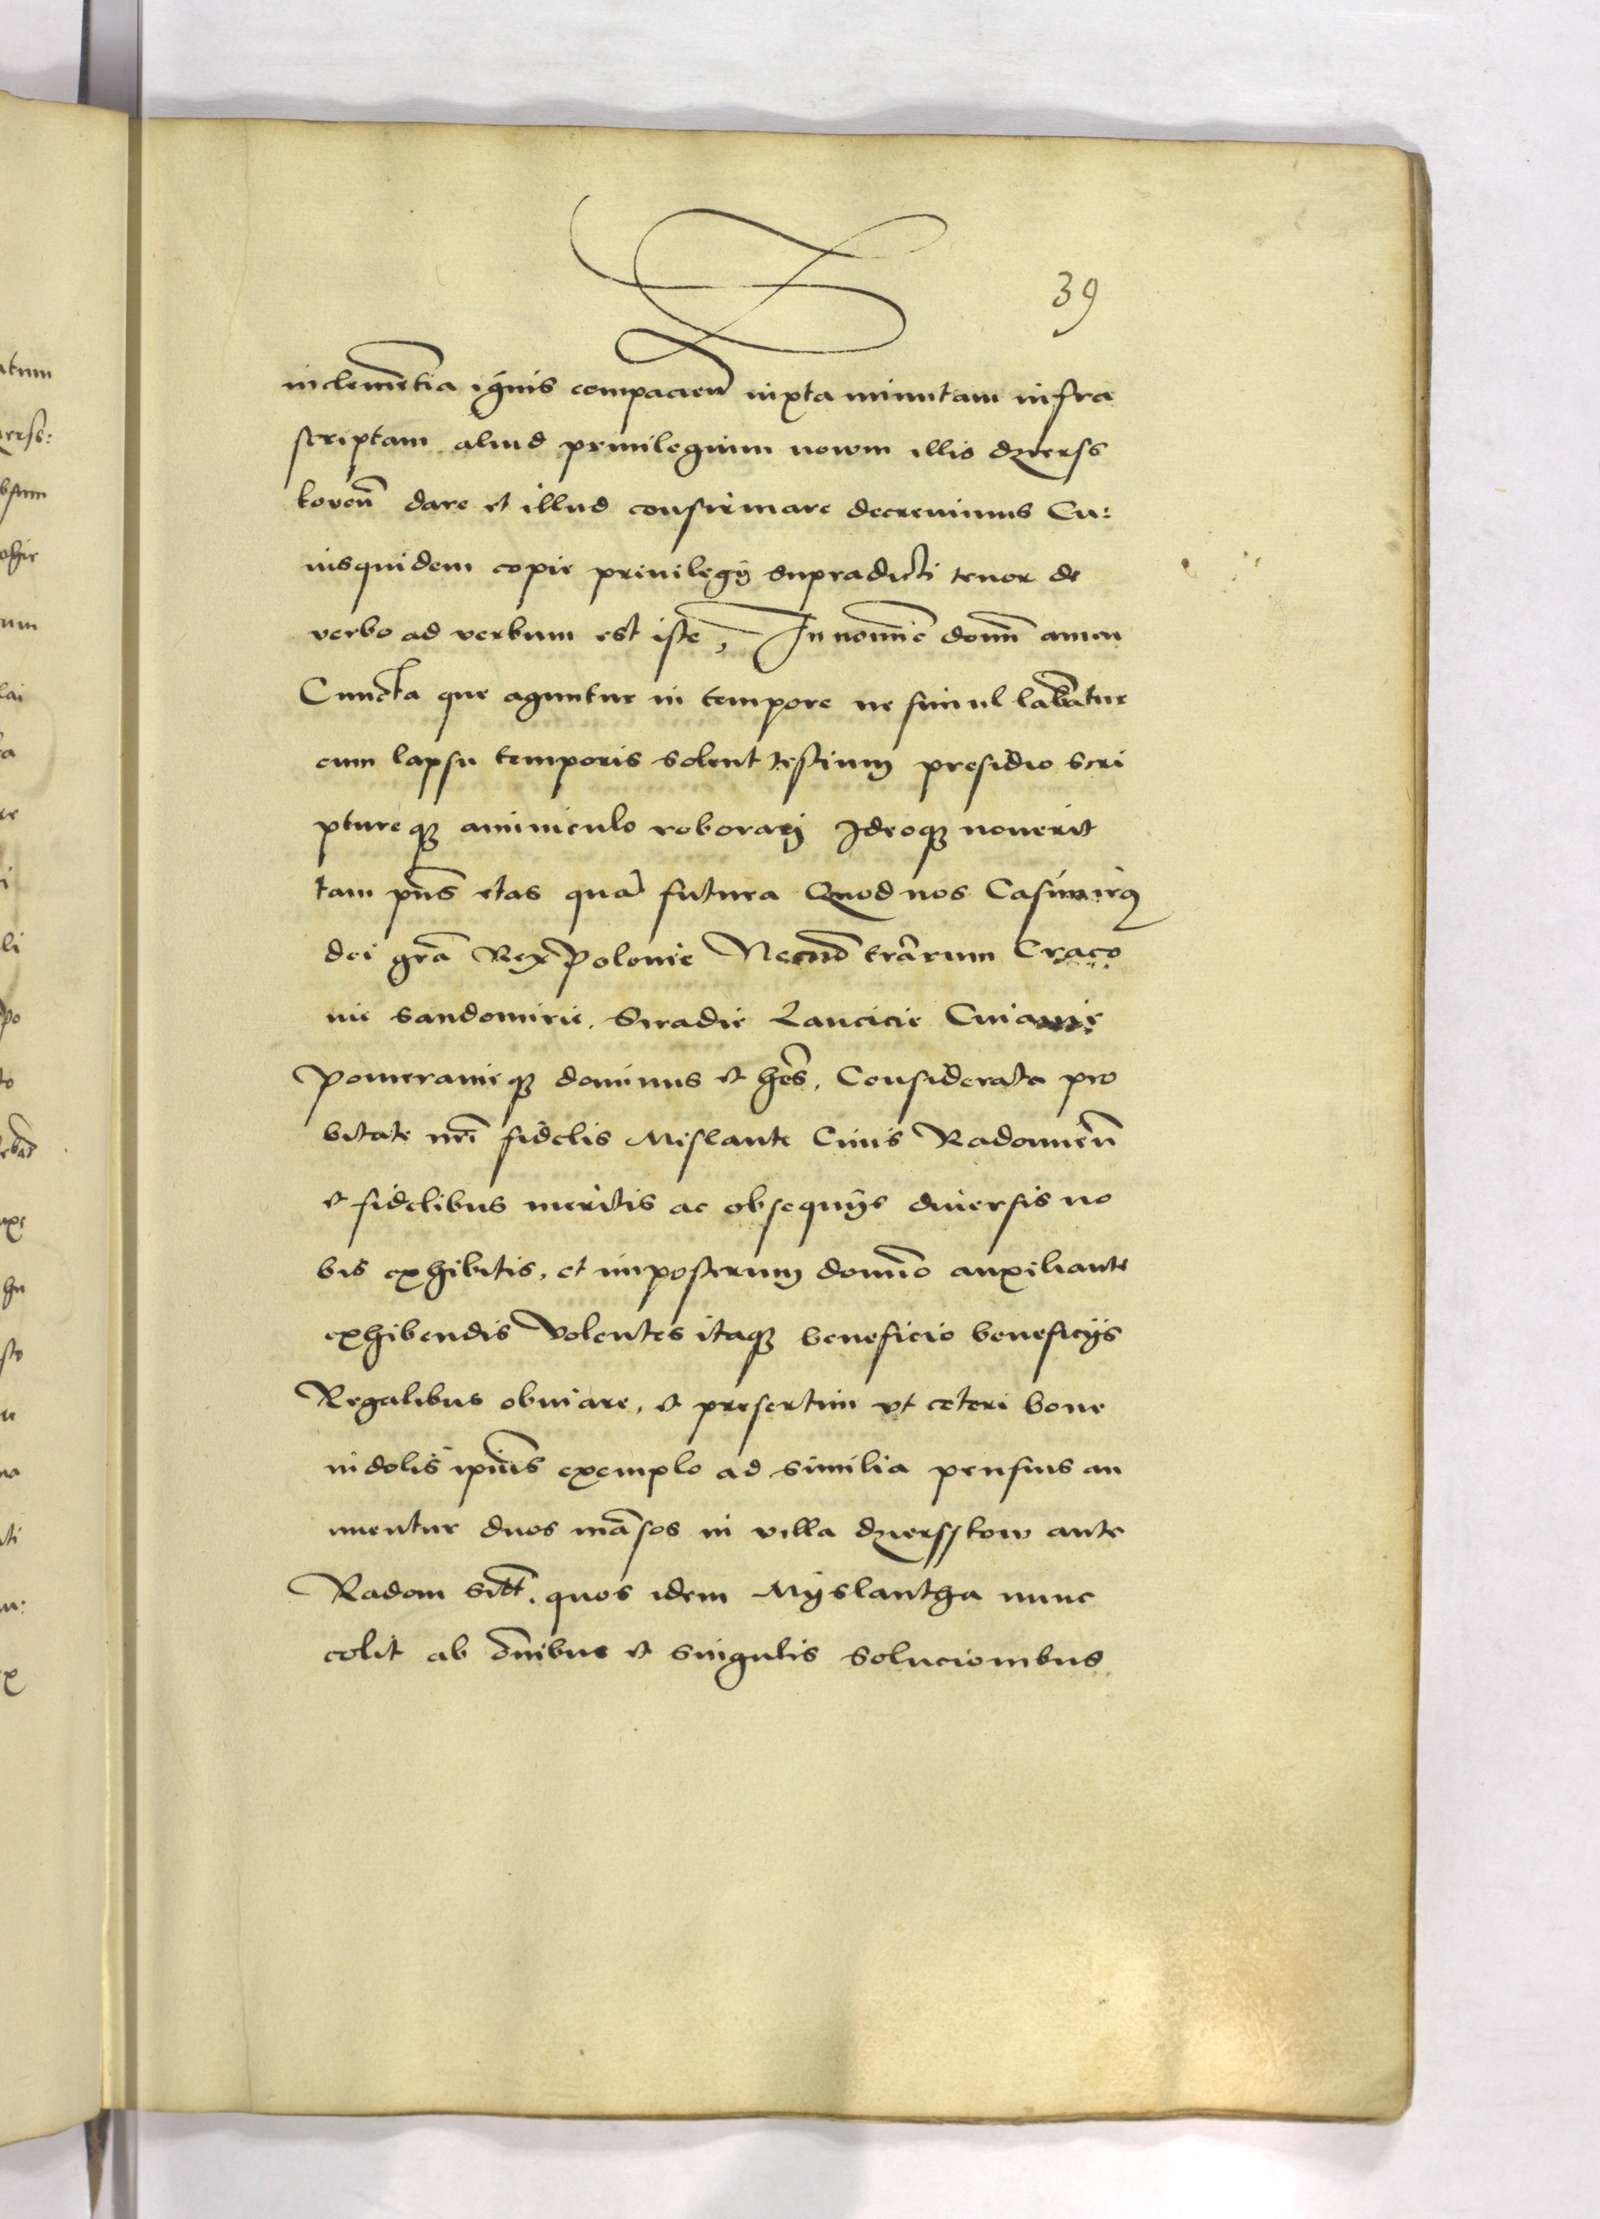 39
inclemẽtia ignis compacieñ iuxta minutam infra
scriptam aliud priuilegium nowm illis dzierss
koveñ dare et illud confirmare decreuimus Cu:
iusquidem copie priuilegÿ supradicti tenor de
verbo ad verbum est iste, In nomĩe domĩ amen
Cuncta que aguntur in tempore ne simul labãtur
cum lapsu temporis solent testium presidio scri
ptureqȝ aminiculo roborarj Ideoqȝ nouerit
tam pñs etas quã futura Quod nos Casimirꝰ
dei grã Rex Polonie Necnõ trãrum Craco
uie Sandomirie. Siradie Lancicie Cuiauie
Pomeranieqȝ dominus et hẽs, Considerata pro
bitate nrĩ fidelis Mislante Ciuis Radomieñ
et fidelibus meritis ac obsequÿs diuersis no
bis exhibitis, et imposterum domĩo auxiliante
exhibendis Volentes itaqȝ beneficio beneficÿs
Regalibus obuiare, et presertim vt ceteri bone
indolis ipiũs exemplo ad similia pensius an
imentur duos mãsos in villa dziersskow ante
Radom sitt̃. quos idem Mÿslantha nunc
colit ab õnibus et singulis solucionibus